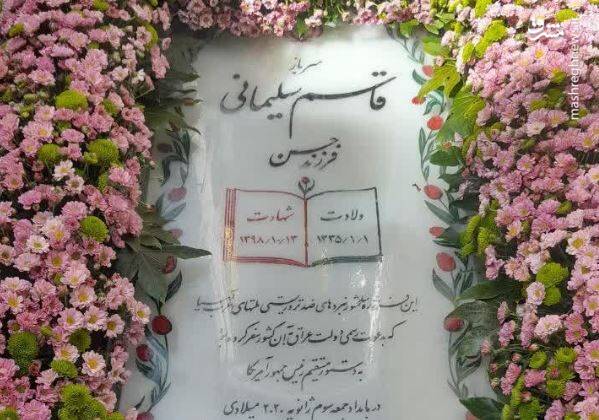 سرباز
قاسم سلیمانی
فرزند حسن
ولادت
۱۳۳۵/۱/۱
شهادت
۱۳۹۸/۱۰/۱۳
این فرمانده نامدار نبردهای ضد تروریستی ملتهای
که به دعوت رسمی دولت عراق به آن کشور سفر کرده بود
به دستور مستقیم رئیس جمهور آمریکا
در بامداد جمعه سوم ژانویه ۲۰۲۰ میلادی
mashreghnews.ir